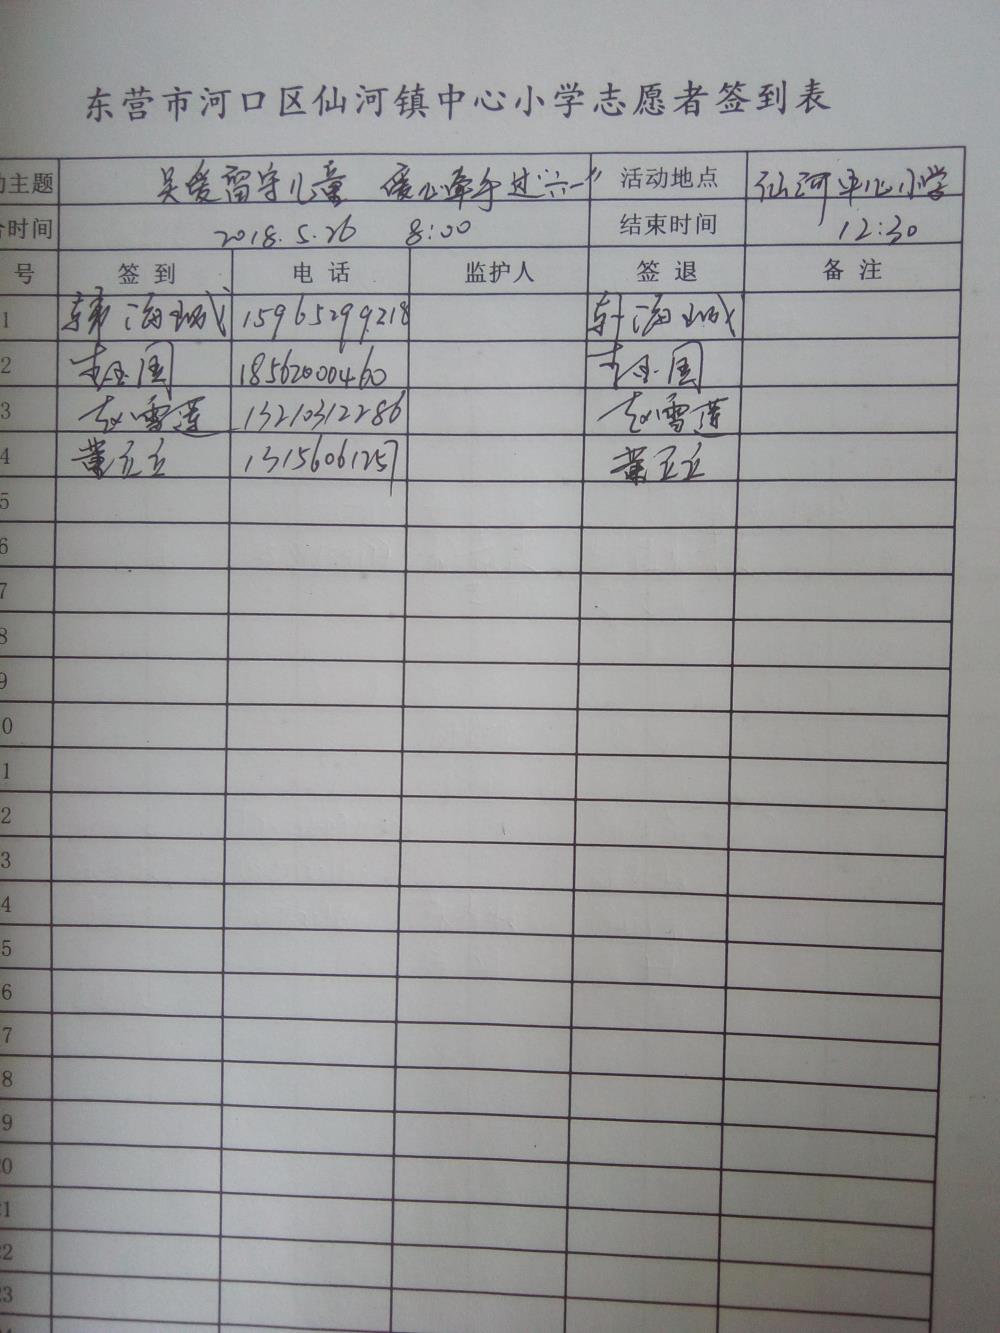 东营市河口区仙河镇中心小学志愿者签到表
动主题 关爱留守儿童 爱心牵手过“六一” 活动地点 仙河中心小学
合时间 2018.5.26 8:00 结束时间 12:30
号 签到 电话 监护人 签退 备注
1 韩海城 15965299218 韩海城
2 国 18562000460 国
3 赵雪莲 13210312286 赵雪莲
4 董 13156061257 董
5
6
7
8
9
0
1
2
3
4
5
6
7
8
9
20
21
22
23